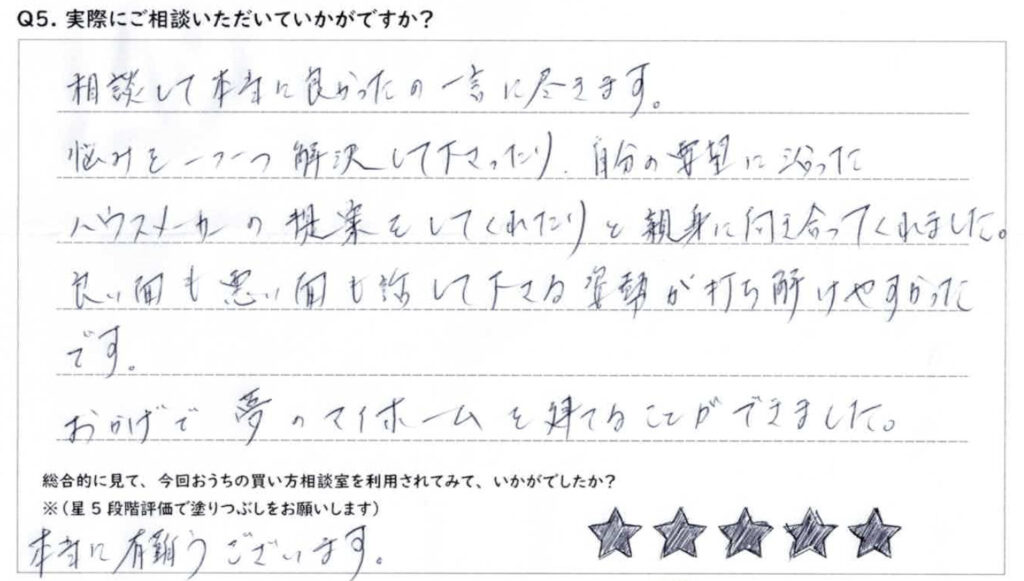 Q5. 実際にご相談いただいていかがですか？
相談して本当に良かったの一言に尽きます。
悩みを一つ一つ解決して下さったり、自分の要望に沿った
ハウスメーカーの提案をしてくれたりと親身に向き合ってくれました。
良い面も悪い面も話して下さる姿勢が打ち解けやすかった
です。
おかげで夢のマイホームを建てることができました。
総合的に見て、今回おうちの買い方相談室を利用されてみて、いかがでしたか？
※（星５段階評価で塗りつぶしをお願いします）
本当に有難うございます。